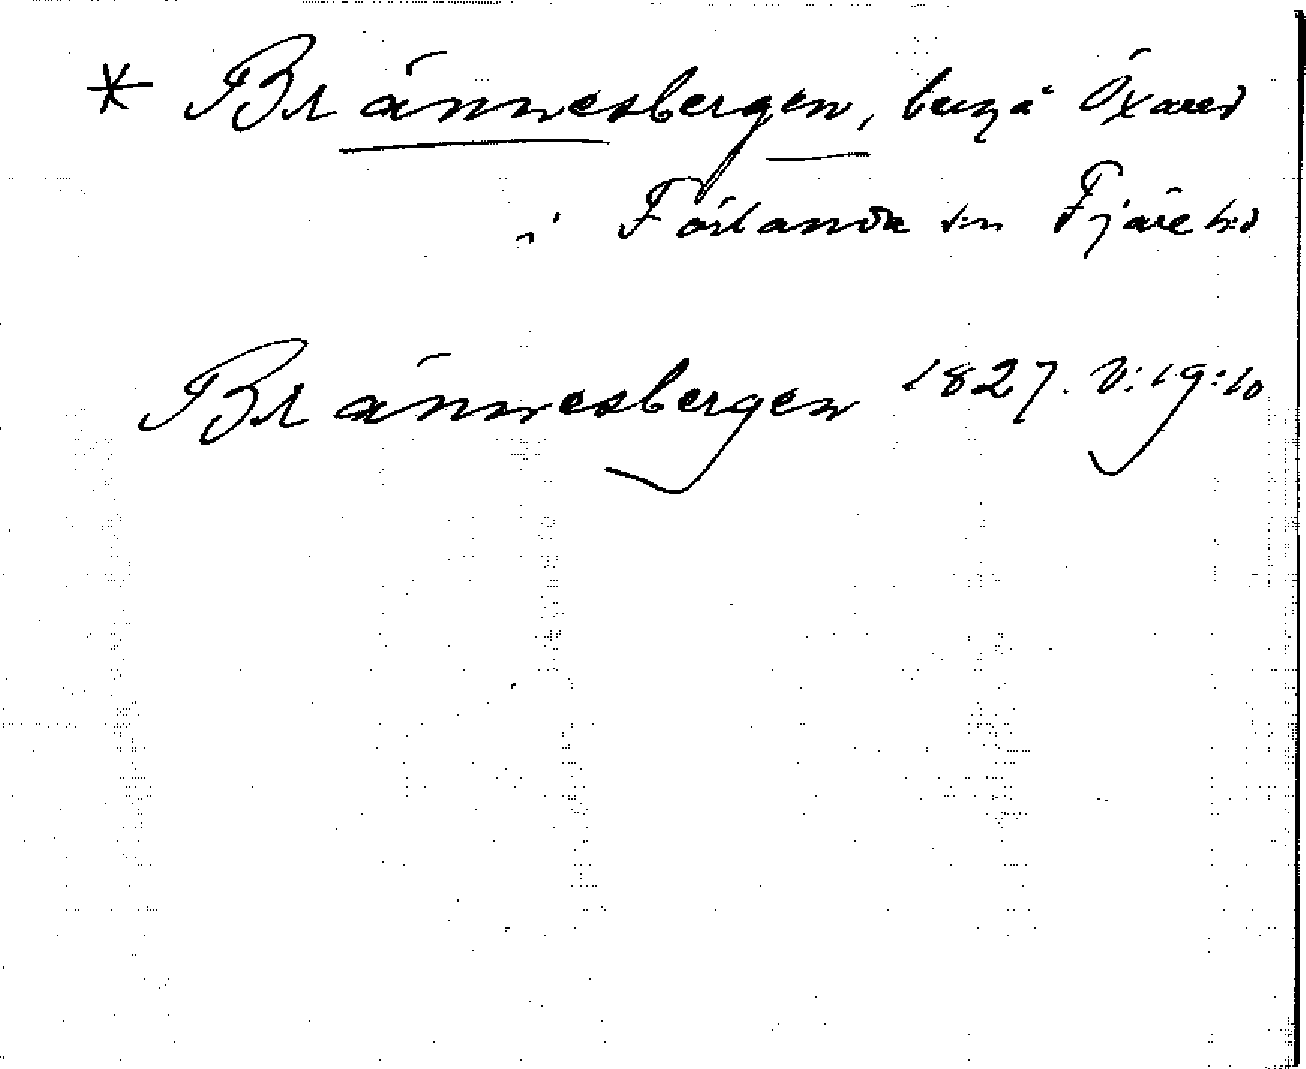 * Brännesbergen, berg å Öxared
i Förlanda sn Fjäre hd
Brännesbergen 1827. V: 19:10